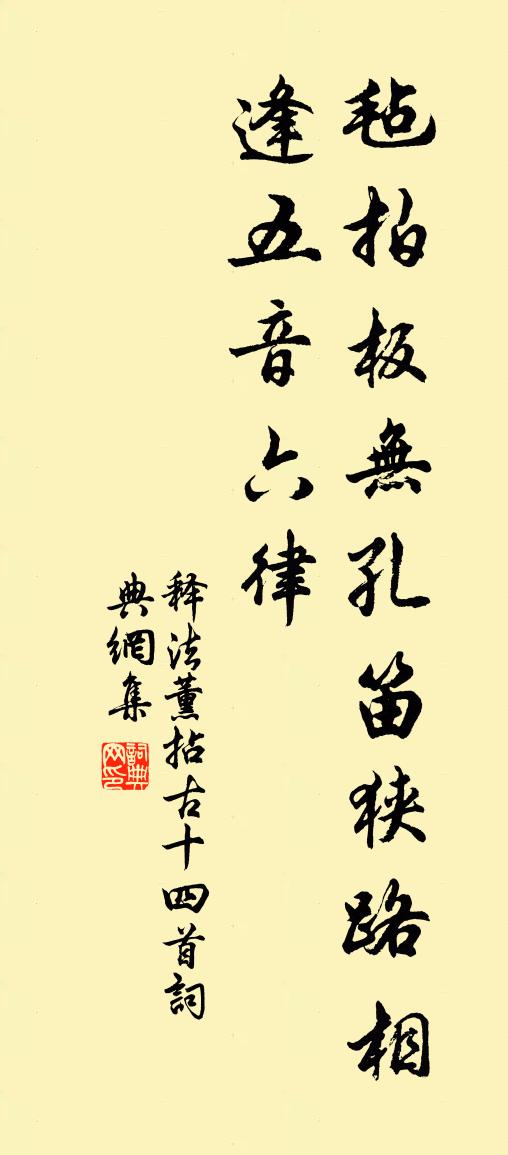 毡拍板無孔笛狹路相
逢五音六律
释法薰拈古十四首詞
典網集
詞典網印